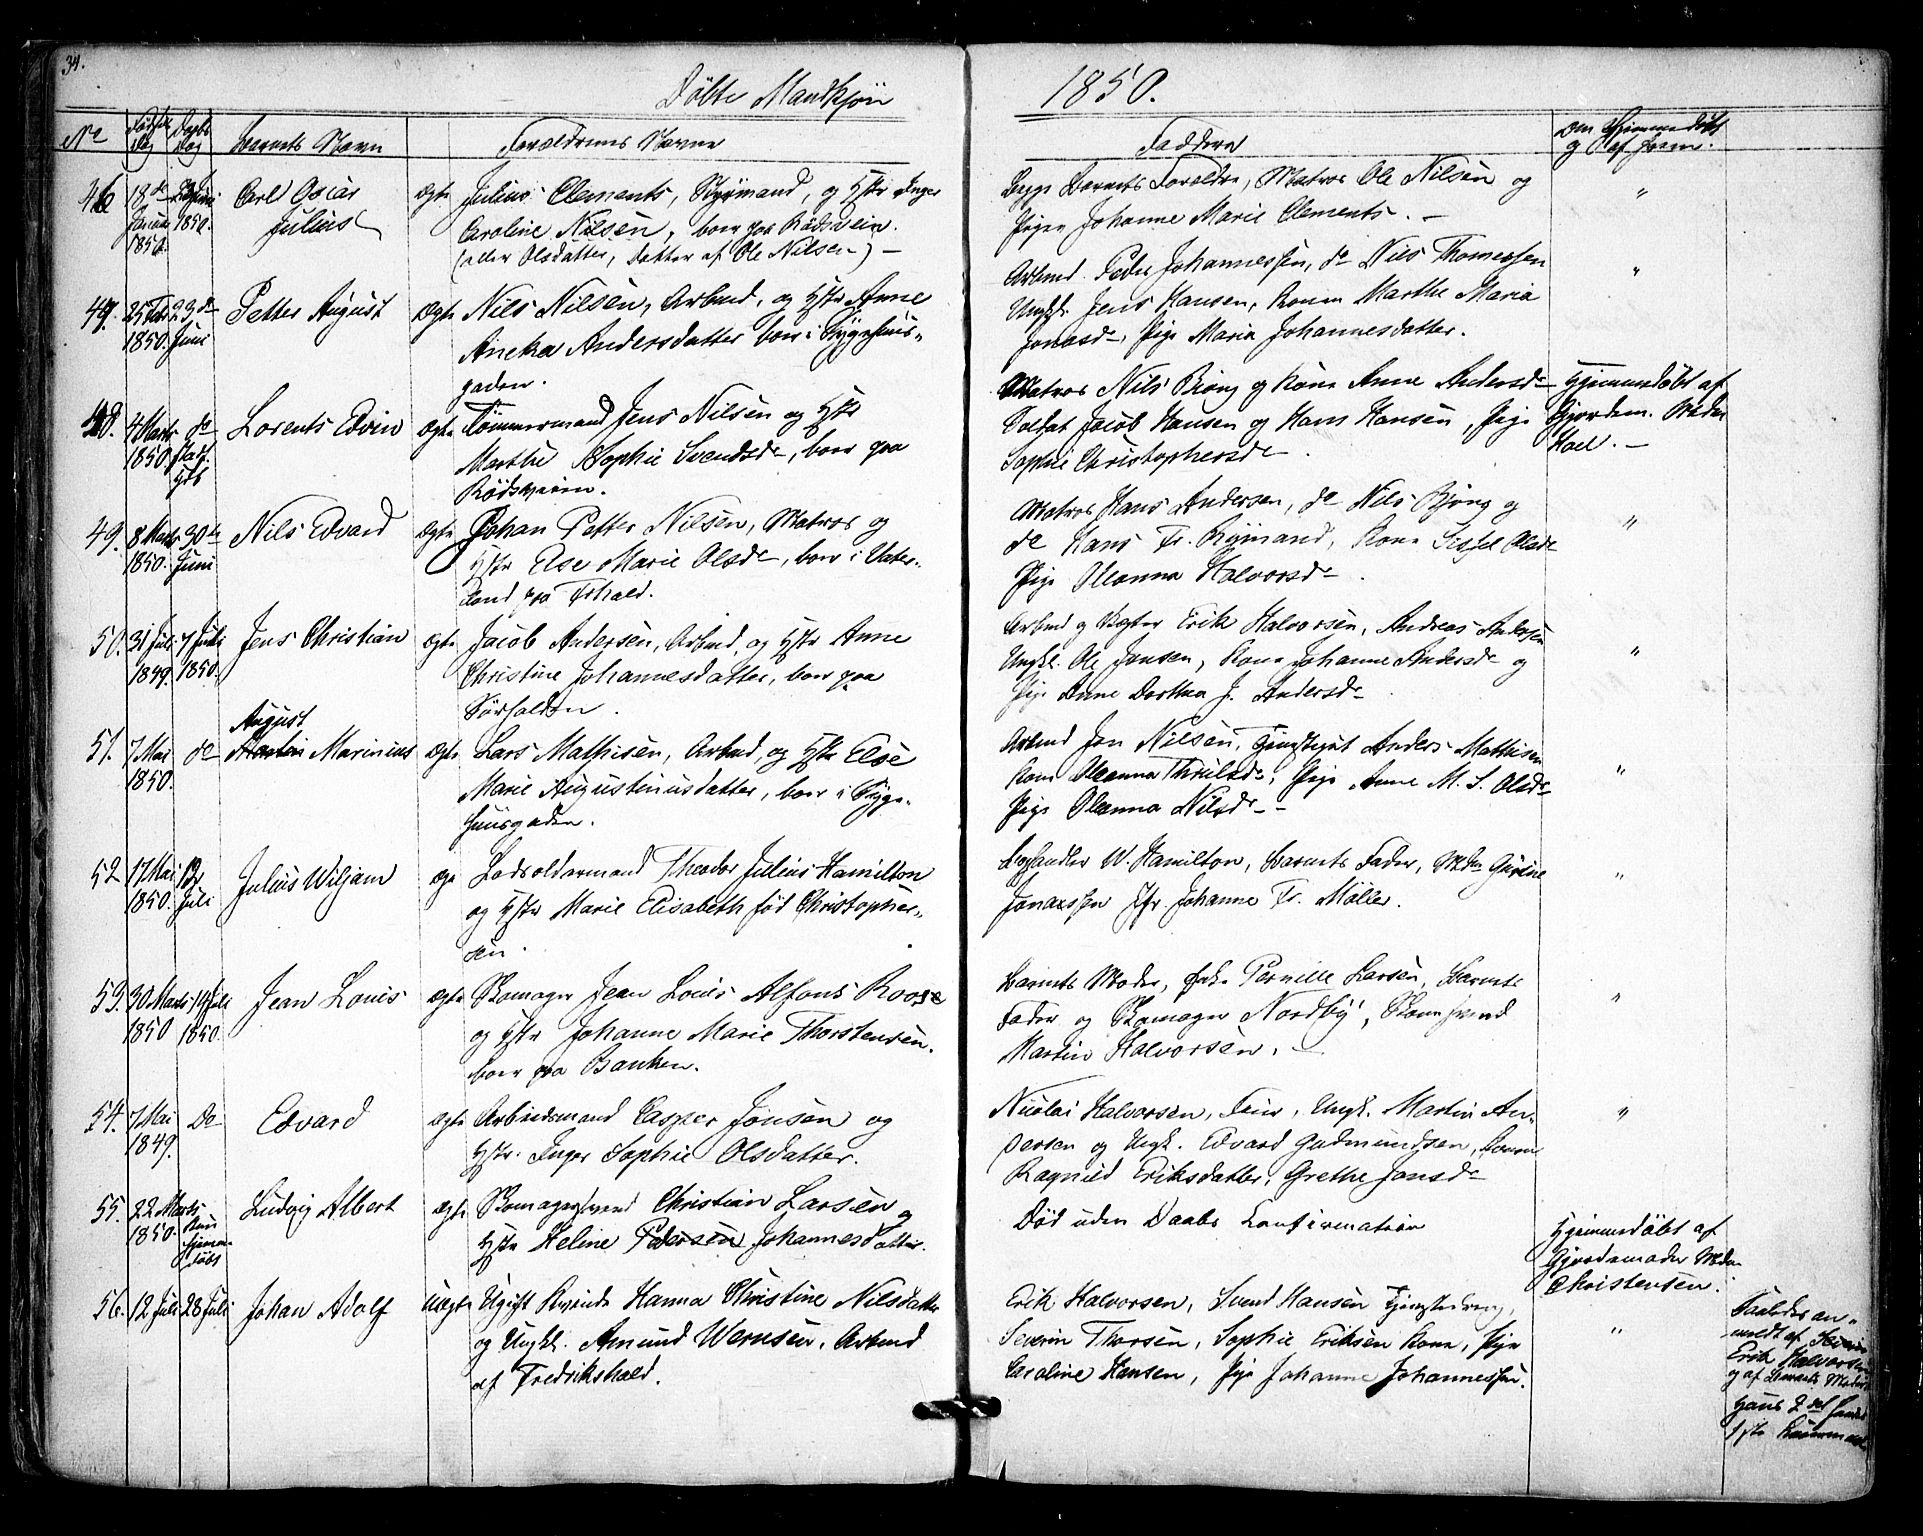 34.
Döbte Mandkjön 1850.
No Fødsels Dag Daabs Dag Barnets Navn Forældrenes Navne Faddere Om Hjemmedøbt og af hvem.
46 18de Januar 1850. 1850. Carl Oscar Julius ægte Julius Clements, Styrmand, og Hstr Inger
Caroline Nilsen, boer paa Rødsveien.
(eller Olsdatter, Datter af Ole Nilsen) —
Begge Barnets Forældre, Matros Ole Nilsen og
Pigen Johanne Marie Clements. — "
47. 25 Febr 1850. 23de Juni Petter August ægte Nils Nilsen, Arbmd, og Hstr Anne
Aneka Andersdatter boer i Byggehuus-
gaden.
Arbmd. Peder Johannessen, do Nils Thomessen
Ungk. Jens Hansen, Konen Marthe Maria
Jonasd., Pige Maria Johannesdatter. "
48. 4 Marts 1850. do Lorents Edvin ægte Tömmermand Jens Nilsen og Hstr
Marthe Sophie Svendsd., boer paa
Rødsveien.
Matros Nils Bjöng og Kone Anne Andersd.
Soldat Jacob Hansen og Hans Hansen, Pige
Sophie Christophersd.
Hjemmedøbt af
Gjordem. Mad.
Hoel. —
49. 8 Marts 1850. 30te Juni Nils Edvard ægte Johan Petter Nilsen, Matros og
Hstr Else Marie Olsd., boer i Vater-
land paa Frhald.
Matros Hans Andersen, do Nils Bjöng og
do Hans Fr. Rÿmand, Kone Sissel Olsd.
Pige Oleanna Halvorsd. "
50. 31 Juli 1849. 7 Juli 1850. Jens Christian ægte Jacob Andersen, Arbmd, og Hstr Anne
Christine Johannesdatter, boer paa
Sörhalden.
Arbmd og Vægter Erik Halvorsen, Andreas Andersen
Ungk. Ole Jonsen, Kone Johanne Andersd. og
Pige Anne Dorthea J. Andersd. "
51. 7 Mai 1850. do August Martin Marinius ægte Lars Mathisen, Arbmd, og Hstr Else
Marie Augustinusdatter, boer i Bygge-
huusgaden.
Arbmd Jon Nilsen, Anders Mathisen
Kone Oleanna Thrulsd., Pige Anne M. S. Olsd.
Pige Oleanna Nilsd. — "
52 17 Mai 1850. Juli Julius Wiljam ægte Lodsoldermand Theodor Julius Hamilton
og Hstr Marie Elisabeth fød Christopher-
sen.
W. Hamilton, Barnets Fader, Gurine
Jonassen Jfr. Johanne Fr. Møller. "
53. 30 Marts 1850 14 Juli 1850. Jean Louis ægte Skomager Jean Louis Alfons Roose
og Hstr Johanne Marie Thorstensen.
boer paa Banken.
Barnets Moder, Enke Pernille Larsen, Barnets
Fader og Skomager Nordby, Skom.svend
Martin Halvorsen. — "
54. 7 Mai 1849. Do Edvard ægte Arbeidsmand Casper Jonsen og
Hstr. Inger Sophie Olsdatter.
Nicolai Halvorsen, Ungk. Martin An-
dersen og Ungk. Edvard Gudmundsen, Konen
Ragnild Eriksdatter, Grethe Jonsd. "
55. 22 Marts 1850. kun hjemmedøbt Ludvig Albert ægte Skomagersvend Christian Larsen og
Hstr Heline Pedersen Johannesdatter.
Død uden Daabs Confirmation
Hjemmedøbt af
Gjordemoder Mad.
Christensen.
56. 12 Juli 28 Juli Johan Adolf uægte Ugift Kvinde Hanna Christine Nilsdatter
og Ungk. Amund Wernsen, Arbmd
af Fredrikshald.
Erik Halvorsen, Svend Hansen Tjenestedreng,
Severin Thorsen, Sophie Eriksen Kone, Pige
Caroline Hansen, Pige Johanne Johannessen. "
Saaledes an-
meldt af
Erik Halvorsen
og af Barnets Moder